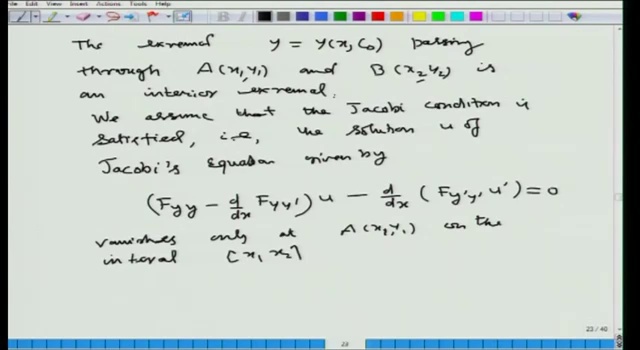 Edit View Insert Actions Tools Help
The extremal y = y(x, C₀) passing
through A(x₁, y₁) and B(x₂, y₂) is
an interior extremal.
We assume that the Jacobi condition is
satisfied, i.e., the solution u of
Jacobi's Equation given by
(Fyy - d/dx Fyy') u - d/dx (Fy'y' u') = 0
vanishes only at A(x₁, y₁) on the
interval [x₁ x₂]
23 / 40
23